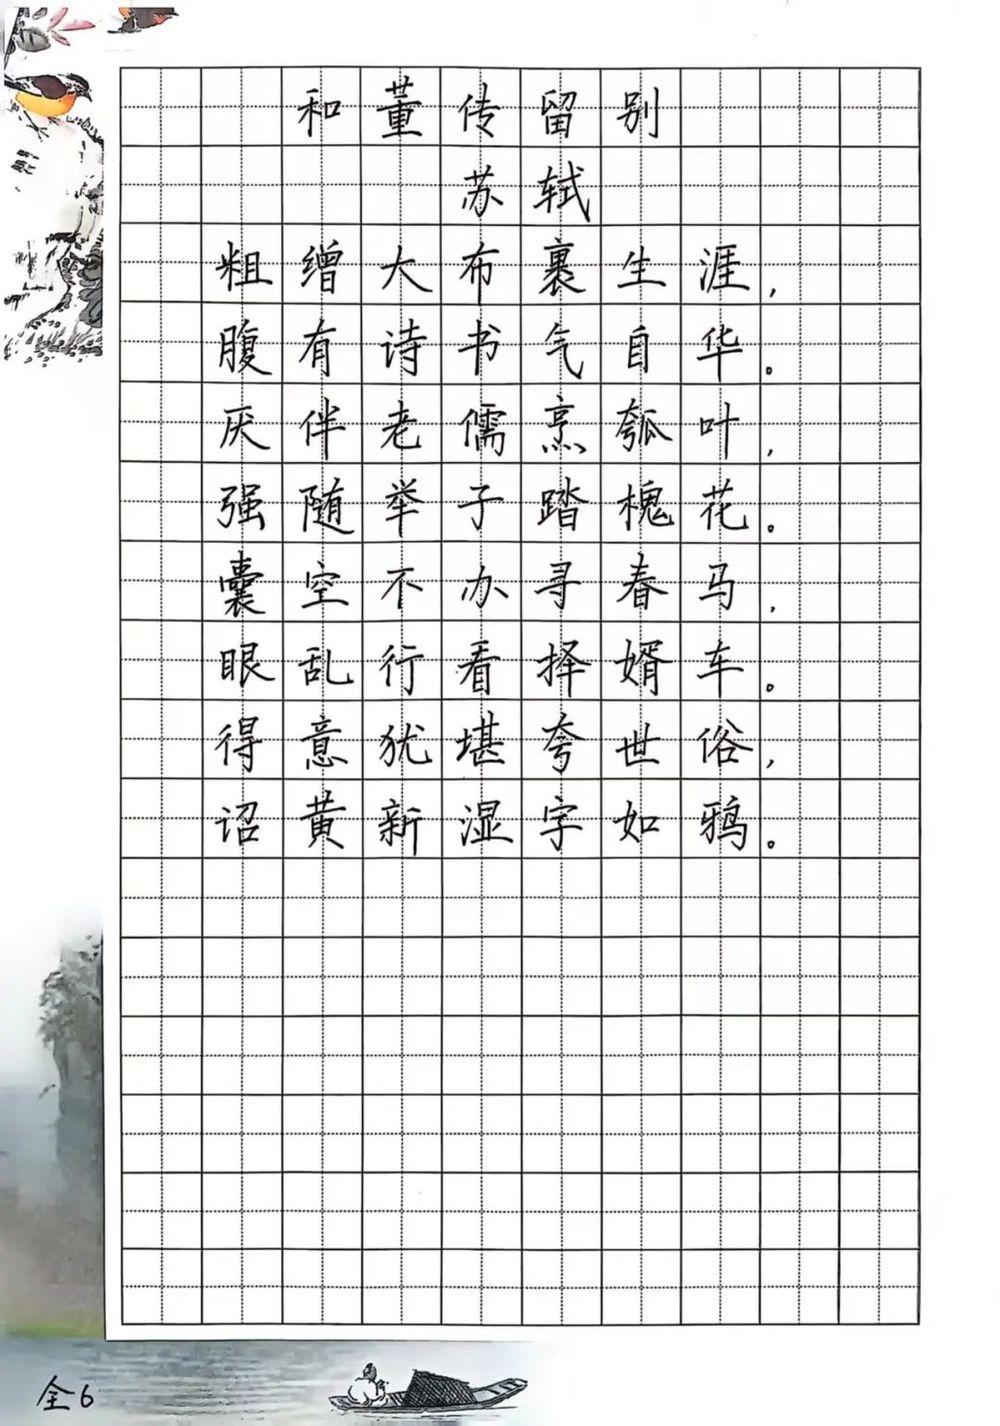 和董传留别
苏轼
粗缯大布裹生涯，
腹有诗书气自华。
厌伴老儒烹瓠叶，
强随举子踏槐花。
囊空不办寻春马，
眼乱行看择婿车。
得意犹堪夸世俗，
诏黄新湿字如鸦。
全6